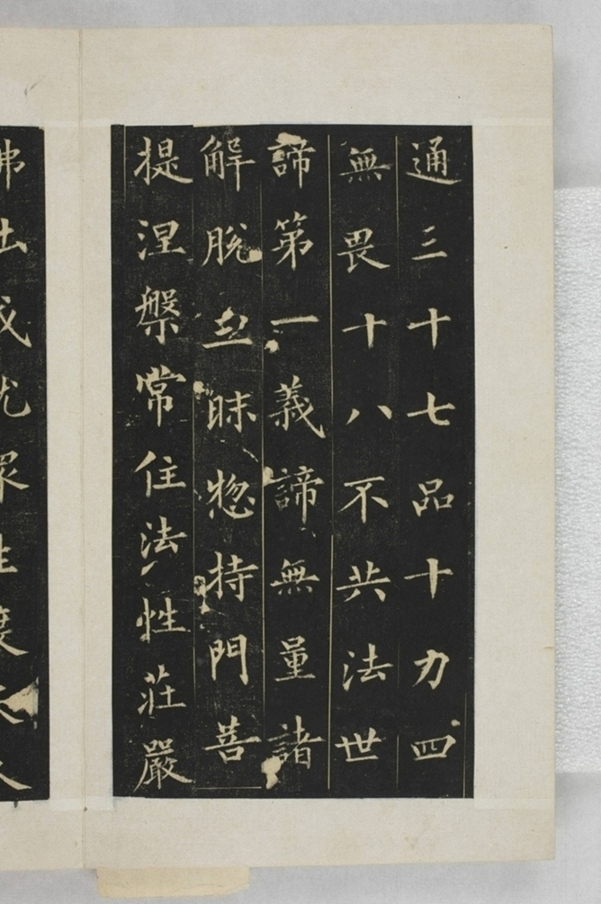 通三十七品十力四
無畏十八不共法世
諦第一義諦無量諸
解脫三昧惣持門菩
提涅槃常住法性莊嚴